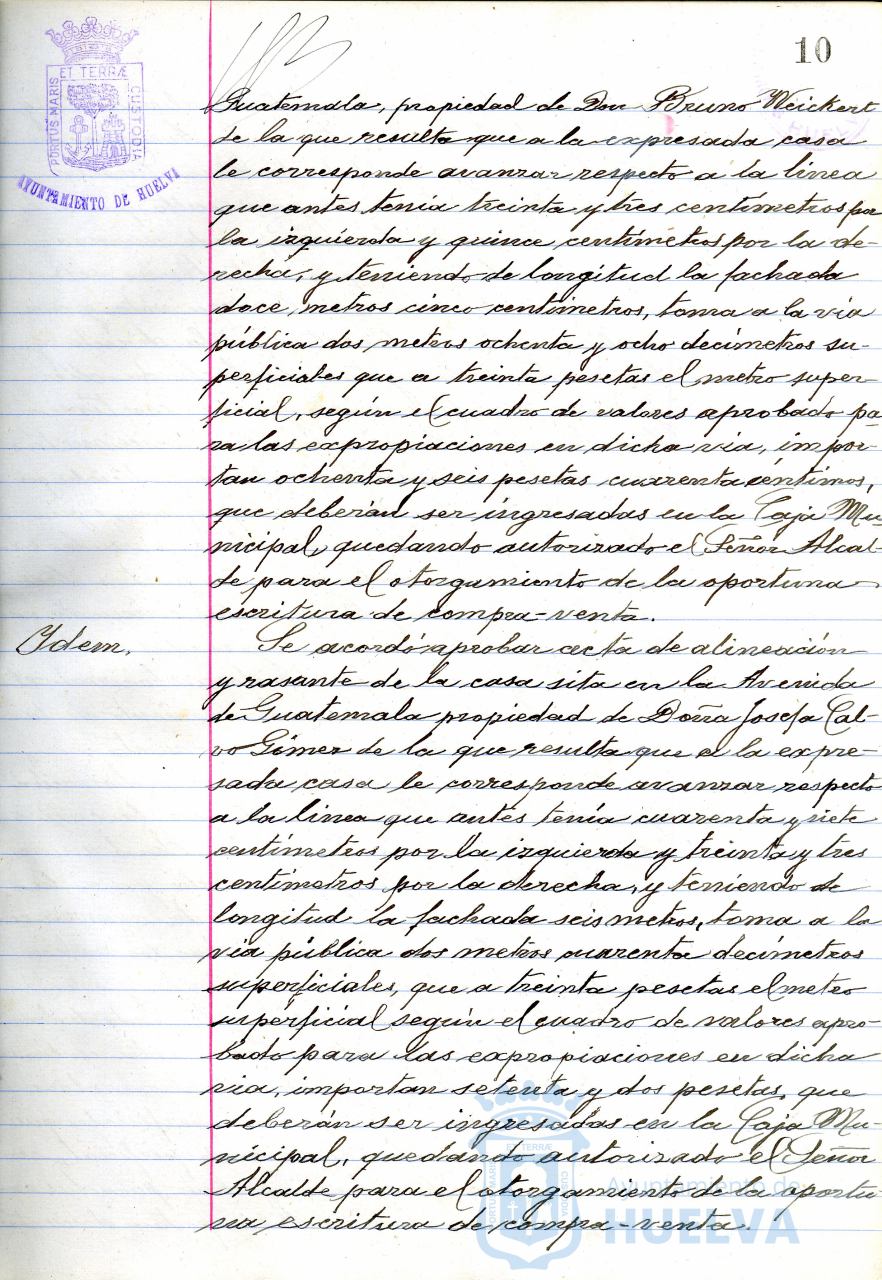 10
ET TERRÆ
PORTUS MARIS
CUSTODIA
AYUNTAMIENTO DE HUELVA
Guatemala, propiedad de Don Bruno Weickert
de la que resulta que a la expresada casa
le corresponde avanzar respecto a la linea
que antes tenía treinta y tres centímetros por
la izquierda y quince centímetros por la de-
recha, y teniendo de longitud la fachada
doce metros cinco centímetros, toma a la via
pública dos metros ochenta y ocho decímetros su-
perficiales que a treinta pesetas el metro super-
ficial, según el cuadro de valores aprobado pa-
ra las expropiaciones en dicha via, impor-
tan ochenta y seis pesetas cuarenta céntimos,
que deberán ser ingresadas en la Caja Mu-
nicipal, quedando autorizado el Señor Alcal-
de para el otorgamiento de la oportuna
escritura de compra-venta.
Ydem.
Se acordó aprobar acta de alineación
y rasante de la casa sita en la Avenida
de Guatemala propiedad de Doña Josefa Cal-
vo Gómez de la que resulta que a la expre-
sada casa le corresponde avanzar respecto
a la linea que antes tenía cuarenta y siete
centímetros por la izquierda y treinta y tres
centímetros por la derecha, y teniendo de
longitud la fachada seis metros, toma a la
via pública dos metros cuarenta decímetros
superficiales, que a treinta pesetas el metro
superficial según el cuadro de valores apro-
bado para las expropiaciones en dicha
via, importan setenta y dos pesetas, que
deberán ser ingresadas en la Caja Mu-
nicipal, quedando autorizado el Señor
Alcalde para el otorgamiento de la oportu-
na escritura de compra-venta.
ET TERRÆ
PORTUS MARIS
CUSTODIA
Ayuntamiento de
HUELVA